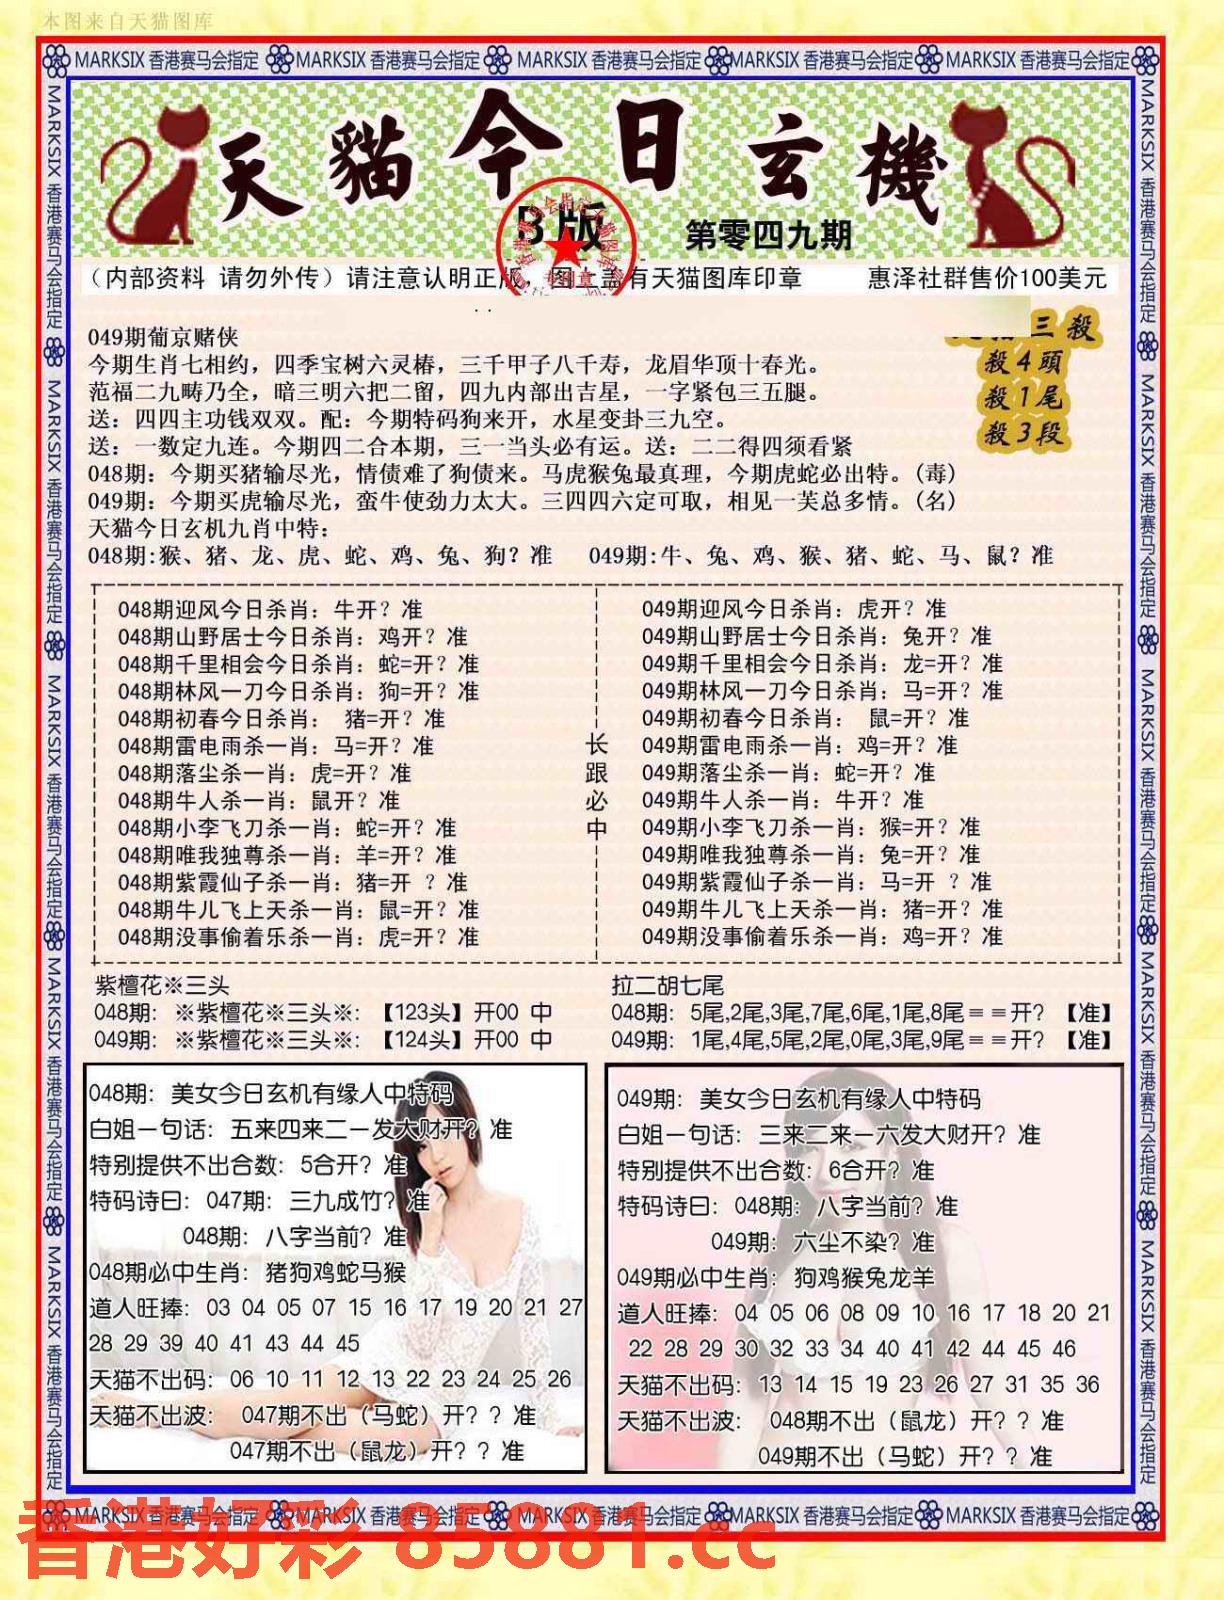 本图来自天猫图库
MARKSIX 香港赛马会指定 MARKSIX 香港赛马会指定 MARKSIX 香港赛马会指定 MARKSIX 香港赛马会指定 MARKSIX 香港赛马会指定
天貓今日玄機
B版
第零四九期
（内部资料 请勿外传）请注意认明正版 图上盖有天猫图库印章 惠泽社群售价100美元
三殺
殺4頭
殺1尾
殺3段
049期葡京赌侠
今期生肖七相约，四季宝树六灵椿，三千甲子八千寿，龙眉华顶十春光。
范福二九畴乃全，暗三明六把二留，四九内部出吉星，一字紧包三五腿。
送：四四主功钱双双。配：今期特码狗来开，水星变卦三九空。
送：一数定九连。今期四二合本期，三一当头必有运。送：二二得四须看紧
048期：今期买猪输尽光，情债难了狗债来。马虎猴兔最真理，今期虎蛇必出特。(毒)
049期：今期买虎输尽光，蛮牛使劲力太大。三四四六定可取，相见一芙总多情。(名)
天猫今日玄机九肖中特：
048期:猴、猪、龙、虎、蛇、鸡、兔、狗？准 049期:牛、兔、鸡、猴、猪、蛇、马、鼠？准
048期迎风今日杀肖：牛开？准
048期山野居士今日杀肖：鸡开？准
048期千里相会今日杀肖：蛇=开？准
048期林风一刀今日杀肖：狗=开？准
048期初春今日杀肖： 猪=开？准
048期雷电雨杀一肖：马=开？准
048期落尘杀一肖：虎=开？准
048期牛人杀一肖：鼠开？准
048期小李飞刀杀一肖：蛇=开？准
048期唯我独尊杀一肖：羊=开？准
048期紫霞仙子杀一肖：猪=开 ？准
048期牛儿飞上天杀一肖：鼠=开？准
048期没事偷着乐杀一肖：虎=开？准
长跟必中
049期迎风今日杀肖：虎开？准
049期山野居士今日杀肖：兔开？准
049期千里相会今日杀肖：龙=开？准
049期林风一刀今日杀肖：马=开？准
049期初春今日杀肖： 鼠=开？准
049期雷电雨杀一肖：鸡=开？准
049期落尘杀一肖：蛇=开？准
049期牛人杀一肖：牛开？准
049期小李飞刀杀一肖：猴=开？准
049期唯我独尊杀一肖：兔=开？准
049期紫霞仙子杀一肖：马=开 ？准
049期牛儿飞上天杀一肖：猪=开？准
049期没事偷着乐杀一肖：鸡=开？准
紫檀花※三头
048期：※紫檀花※三头※：【123头】开00 中
049期：※紫檀花※三头※：【124头】开00 中
拉二胡七尾
048期：5尾,2尾,3尾,7尾,6尾,1尾,8尾＝＝开？【准】
049期：1尾,4尾,5尾,2尾,0尾,3尾,9尾＝＝开？【准】
048期：美女今日玄机有缘人中特码
白姐一句话：五来四来二一发大财开？准
特别提供不出合数：5合开？准
特码诗曰：047期：三九成竹？准
048期：八字当前？准
048期必中生肖：猪狗鸡蛇马猴
道人旺捧：03 04 05 07 15 16 17 19 20 21 27
28 29 39 40 41 43 44 45
天猫不出码：06 10 11 12 13 22 23 24 25 26
天猫不出波： 047期不出（马蛇）开？？准
047期不出（鼠龙）开？？准
049期：美女今日玄机有缘人中特码
白姐一句话：三来二来一六发大财开？准
特别提供不出合数：6合开？准
特码诗曰：048期：八字当前？准
049期：六尘不染？准
049期必中生肖：狗鸡猴兔龙羊
道人旺捧：04 05 06 08 09 10 16 17 18 20 21
22 28 29 30 32 33 34 40 41 42 44 45 46
天猫不出码：13 14 15 19 23 26 27 31 35 36
天猫不出波： 048期不出（鼠龙）开？？准
049期不出（马蛇）开？？准
MARKSIX 香港赛马会指定 MARKSIX 香港赛马会指定 MARKSIX 香港赛马会指定 MARKSIX 香港赛马会指定 MARKSIX 香港赛马会指定
MARKSIX 香港赛马会指定 MARKSIX 香港赛马会指定 MARKSIX 香港赛马会指定 MARKSIX 香港赛马会指定 MARKSIX 香港赛马会指定
MARKSIX 香港赛马会指定 MARKSIX 香港赛马会指定 MARKSIX 香港赛马会指定 MARKSIX 香港赛马会指定 MARKSIX 香港赛马会指定
香港好彩 85881.cc